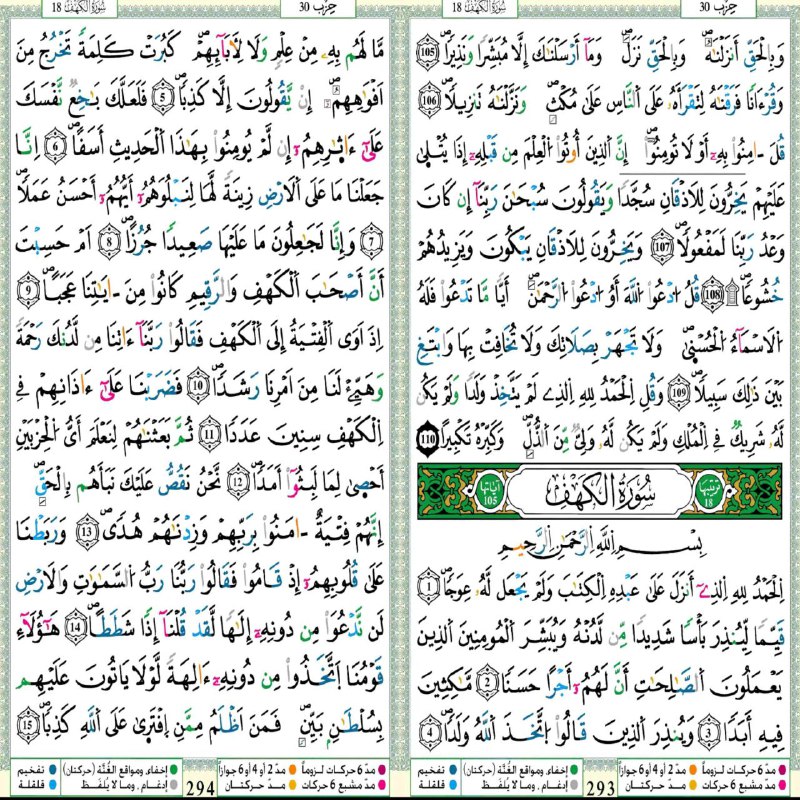 سُورَةُ الكَهْفِ 18
حِزْب 30
وَبِالْحَقِّ أَنزَلْنَٰهُ وَبِالْحَقِّ نَزَلَ وَمَا أَرْسَلْنَٰكَ إِلَّا مُبَشِّرًا وَنَذِيرًا 105
وَقُرْءَانًا فَرَقْنَٰهُ لِتَقْرَأَهُ عَلَى النَّاسِ عَلَىٰ مُكْثٍ وَنَزَّلْنَٰهُ تَنزِيلًا 106
قُلَ ـامِنُوا بِهِۦ أَوْ لَا تُومِنُوا إِنَّ الَّذِينَ أُوتُوا الْعِلْمَ مِن قَبْلِهِۦ إِذَا يُتْلَىٰ
عَلَيْهِمْ يَخِرُّونَ لِلَاذْقَانِ سُجَّدًا وَيَقُولُونَ سُبْحَٰنَ رَبِّنَا إِن كَانَ
وَعْدُ رَبِّنَا لَمَفْعُولًا 107 وَيَخِرُّونَ لِلَاذْقَانِ يَبْكُونَ وَيَزِيدُهُمْ
خُشُوعًا 108 قُلُ ادْعُوا اللَّهَ أَوُ ادْعُوا الرَّحْمَٰنَ أَيًّا مَّا تَدْعُوا فَلَهُ
الَاسْمَاءُ الْحُسْنَىٰ وَلَا تَجْهَرْ بِصَلَاتِكَ وَلَا تُخَافِتْ بِهَا وَابْتَغِ
بَيْنَ ذَٰلِكَ سَبِيلًا 109 وَقُلِ الْحَمْدُ لِلهِ الَّذِي لَمْ يَتَّخِذْ وَلَدًا وَلَمْ يَكُن
لَّهُ شَرِيكٌ فِي الْمُلْكِ وَلَمْ يَكُن لَّهُ وَلِيٌّ مِّنَ الذُّلِّ وَكَبِّرْهُ تَكْبِيرًا 110
تَرتيبُها 18 سُورَةُ الكَهْفِ آيَاتُها 105
بِسْمِ اللَّهِ الرَّحْمَٰنِ الرَّحِيمِ
الْحَمْدُ لِلهِ الَّذِي أَنزَلَ عَلَىٰ عَبْدِهِ الْكِتَٰبَ وَلَمْ يَجْعَل لَّهُ عِوَجًا 1
قَيِّمًا لِّيُنذِرَ بَأْسًا شَدِيدًا مِّن لَّدُنْهُ وَيُبَشِّرَ الْمُومِنِينَ الَّذِينَ
يَعْمَلُونَ الصَّٰلِحَٰتِ أَنَّ لَهُمُ أَجْرًا حَسَنًا 2 مَّٰكِثِينَ
فِيهِ أَبَدًا 3 وَيُنذِرَ الَّذِينَ قَالُوا اتَّخَذَ اللَّهُ وَلَدًا 4
مدّ 6 حركات لزوماً مدّ 2 أو 4 أو 6 جوازا إخفاء ومواقع الغُنَّة (حركتان) تفخيم
مدّ مشبع 6 حركات مدّ حركتان 293 إدغام، وما لا يُلفَظ قلقلة
سُورَةُ الكَهْفِ 18
حِزْب 30
مَّا لَهُم بِهِۦ مِنْ عِلْمٍ وَلَا لِأَبَائِهِمْ كَبُرَتْ كَلِمَةً تَخْرُجُ مِنَ
افْوَٰهِهِمُ إِن يَّقُولُونَ إِلَّا كَذِبًا 5 فَلَعَلَّكَ بَٰخِعٌ نَّفْسَكَ
عَلَىٰ ءَاثَٰرِهِمُ إِن لَّمْ يُومِنُوا بِهَٰذَا الْحَدِيثِ أَسَفًا 6 إِنَّا
جَعَلْنَا مَا عَلَى الَارْضِ زِينَةً لَّهَا لِنَبْلُوَهُمُ أَيُّهُمُ أَحْسَنُ عَمَلًا
7 وَإِنَّا لَجَٰعِلُونَ مَا عَلَيْهَا صَعِيدًا جُرُزًا 8 اَمْ حَسِبْتَ
أَنَّ أَصْحَٰبَ الْكَهْفِ وَالرَّقِيمِ كَانُوا مِنَ ـايَٰتِنَا عَجَبًا 9
اِذَ اَوَى الْفِتْيَةُ إِلَى الْكَهْفِ فَقَالُوا رَبَّنَا ءَاتِنَا مِن لَّدُنكَ رَحْمَةً
وَهَيِّئْ لَنَا مِنَ امْرِنَا رَشَدًا 10 فَضَرَبْنَا عَلَىٰ ءَاذَانِهِمْ فِي
الْكَهْفِ سِنِينَ عَدَدًا 11 ثُمَّ بَعَثْنَٰهُمْ لِنَعْلَمَ أَيُّ الْحِزْبَيْنِ
أَحْصَىٰ لِمَا لَبِثُوا أَمَدًا 12 نَّحْنُ نَقُصُّ عَلَيْكَ نَبَأَهُم بِالْحَقِّ
إِنَّهُمْ فِتْيَةٌ ـامَنُوا بِرَبِّهِمْ وَزِدْنَٰهُمْ هُدًى 13 وَرَبَطْنَا
عَلَىٰ قُلُوبِهِمُ إِذْ قَامُوا فَقَالُوا رَبُّنَا رَبُّ السَّمَٰوَٰتِ وَالَارْضِ
لَن نَّدْعُوَا مِن دُونِهِۦ إِلَٰهًا لَّقَدْ قُلْنَا إِذًا شَطَطًا 14 هَٰؤُلَاءِ
قَوْمُنَا اتَّخَذُوا مِن دُونِهِۦ ءَالِهَةً لَّوْلَا يَاتُونَ عَلَيْهِم
بِسُلْطَٰنٍ بَيِّنٍ فَمَنَ اَظْلَمُ مِمَّنِ افْتَرَىٰ عَلَى اللَّهِ كَذِبًا 15
مدّ 6 حركات لزوماً مدّ 2 أو 4 أو 6 جوازا إخفاء ومواقع الغُنَّة (حركتان) تفخيم
مدّ مشبع 6 حركات مدّ حركتان 294 إدغام، وما لا يُلفَظ قلقلة